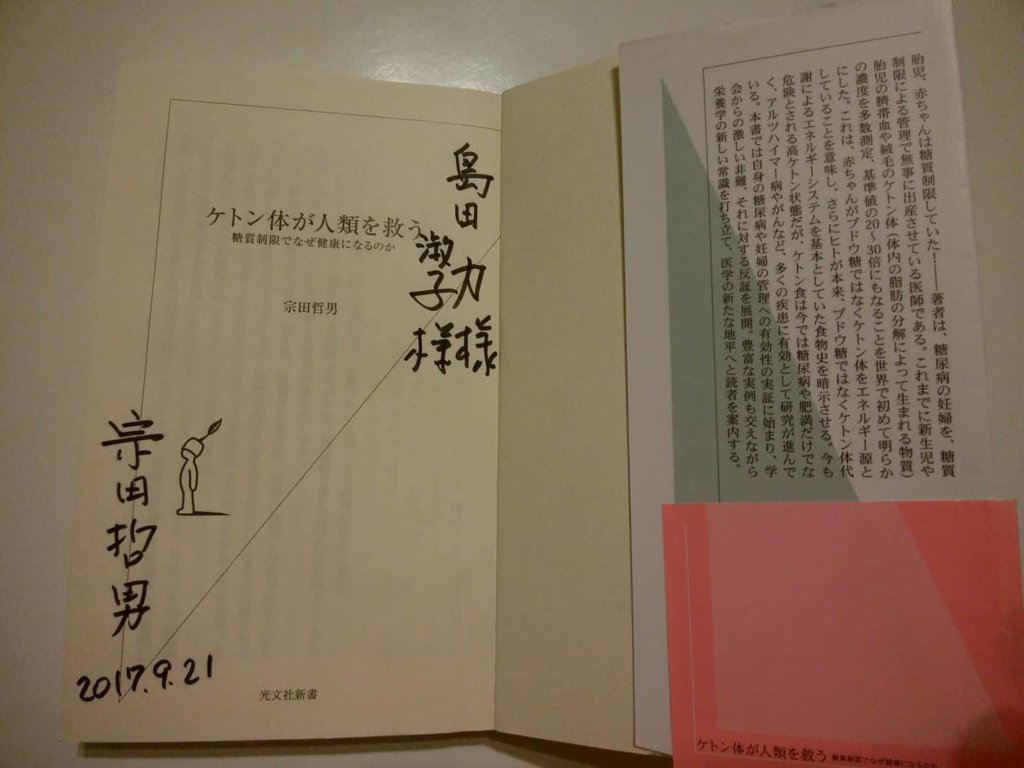 胎児、赤ちゃんは糖質制限していた!――著者は、糖尿病の妊婦を、糖質
制限による管理で無事に出産させている医師である。これまでに新生児や
胎児の臍帯血や絨毛のケトン体(体内の脂肪の分解によって生まれる物質)
の濃度を多数測定、基準値の20~30倍にもなることを世界で初めて明らか
にした。これは、赤ちゃんがブドウ糖ではなくケトン体をエネルギー源と
していることを意味し、さらにヒトが本来、ブドウ糖ではなくケトン体代
謝によるエネルギーシステムを基本としていた食物史を暗示させる。今も
危険とされる高ケトン状態だが、ケトン食は今では糖尿病や肥満だけでな
く、アルツハイマー病やがんなど、多くの疾患に有効として研究が進んで
いる。本書では自身の糖尿病や妊婦の管理への有効性の実証に始まり、学
会からの激しい非難、それに対する反証を展開。豊富な実例も交えながら
栄養学の新しい常識を打ち立て、医学の新たな地平へと読者を案内する。
ケトン体が人類を救う 糖質制限でなぜ健康になるのか
島田 力様
淑子様
ケトン体が人類を救う
糖質制限でなぜ健康になるのか
宗田哲男
宗田哲男
2017.9.21
光文社新書